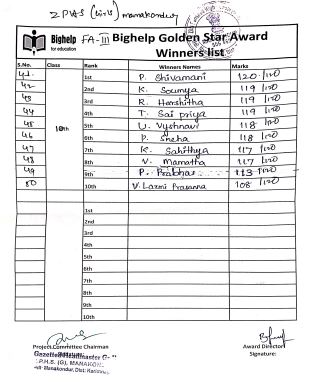 ZPHS (Girls) manakondur
Bighelp for education FA-III Bighelp Golden Star Award
Winners list
S.No. Class Rank Winners Names Marks
41. 10th 1st P. Shivamani 120/120
42 2nd K. Soumya 119/120
43 3rd R. Harshitha 119/120
44 4th T. Sai priya 119/120
45 5th U. Vyshnavi 118/120
46 6th P. Sneha 118/120
47 7th K. Sahithya 117/120
48 8th V. Mamatha 117/120
49 9th P. Prabhas 113/120
50 10th V. Laxmi Prasanna 108/120
1st
2nd
3rd
4th
5th
6th
7th
8th
9th
10th
Project Committee Chairman Award Director
Signature:
Gazetted Headmaster
Z.P.H.S. (G), MANAKON
Manakondur, Dist: Karimna